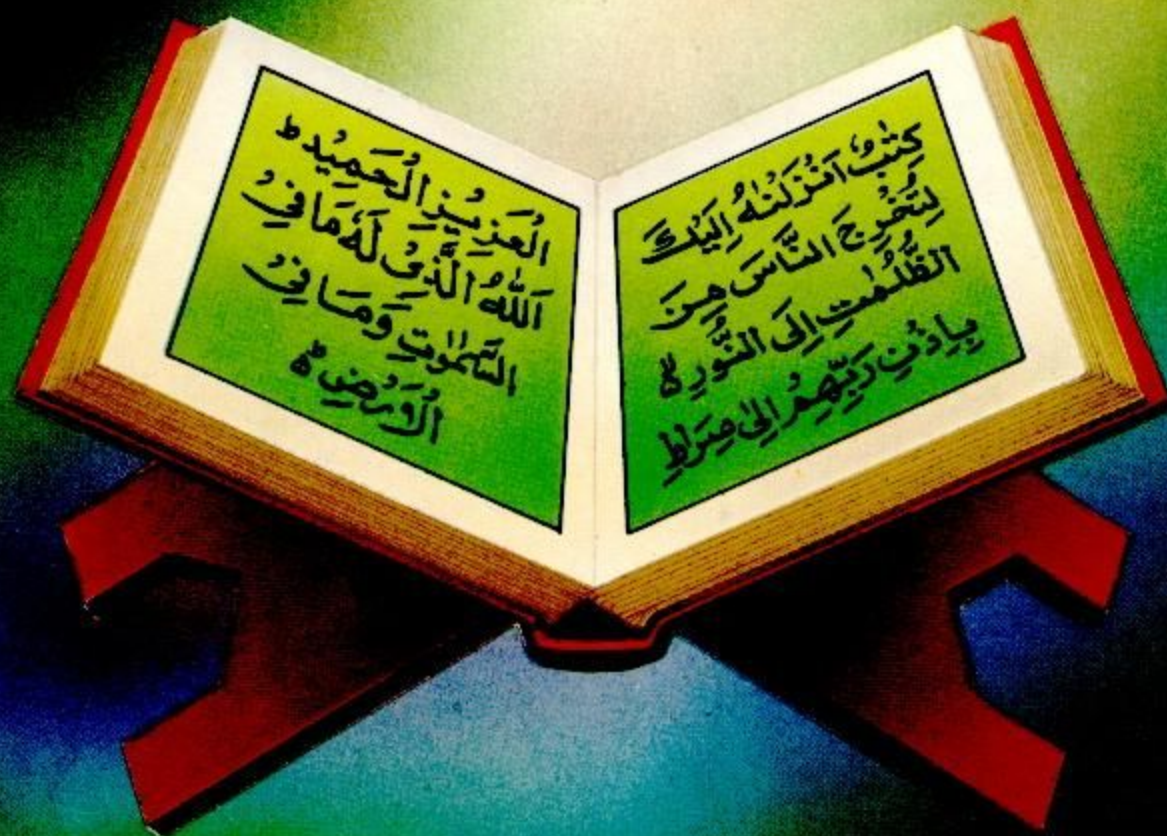 كِتٰبٌ اَنْزَلْنٰهُ اِلَيْكَ
لِتُخْرِجَ النَّاسَ مِنَ
الظُّلُمٰتِ اِلَى النُّوْرِ ۙ
بِاِذْنِ رَبِّهِمْ اِلٰى صِرَاطِ
الْعَزِيْزِ الْحَمِيْدِ ؕ
اَللّٰهُ الَّذِىْ لَهٗ مَا فِىْ
السَّمٰوٰتِ وَمَا فِىْ
الْاَرْضِ ؕ